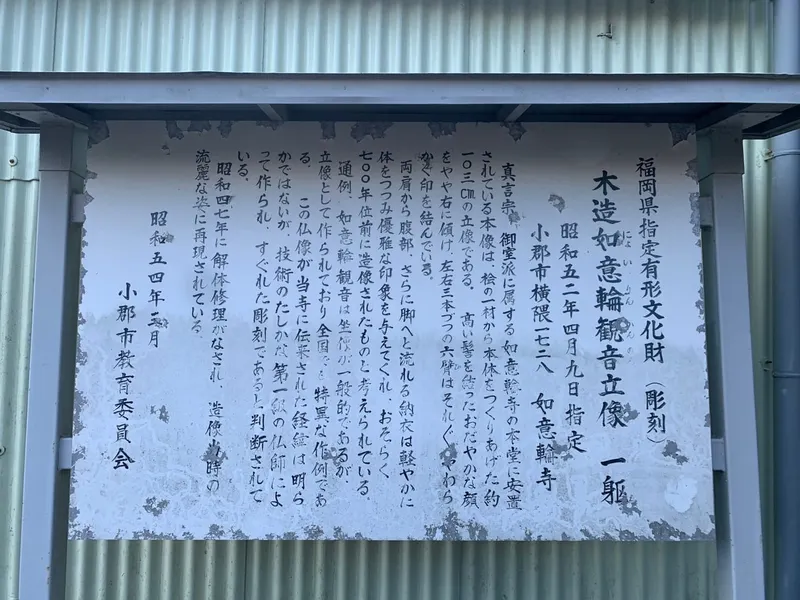 福岡県指定有形文化財（彫刻）
木造如意輪観音立像 一躯
にょいりんかんのん
昭和五二年四月九日指定
小郡市横隈一七二八 如意輪寺
真言宗 御室派に属する如意輪寺の本堂に安置
されている本像は、桧の一材から本体をつくりあげた約
一〇三㎝の立像である。高い髻を結ったおだやかな顔
をやや右に傾け、左右三本づつの六臂はそれぞれやわら
かく印を結んでいる。
両肩から腹部、さらに脚へと流れる衲衣は軽やかに
体をつつみ優雅な印象を与えてくれ、おそらく
七〇〇年位前に造像されたものと考えられている。
通例、如意輪観音は坐像が一般的であるが、
立像として作られており全国でも特異な作例であ
る。この仏像が当寺に伝来された経緯は明ら
かではないが、技術のたしかな第一級の仏師によ
って作られ、すぐれた彫刻であると判断されて
いる。
昭和四七年に解体修理がなされ、造像当時の
流麗な姿に再現されている。
昭和五四年三月
小郡市教育委員会